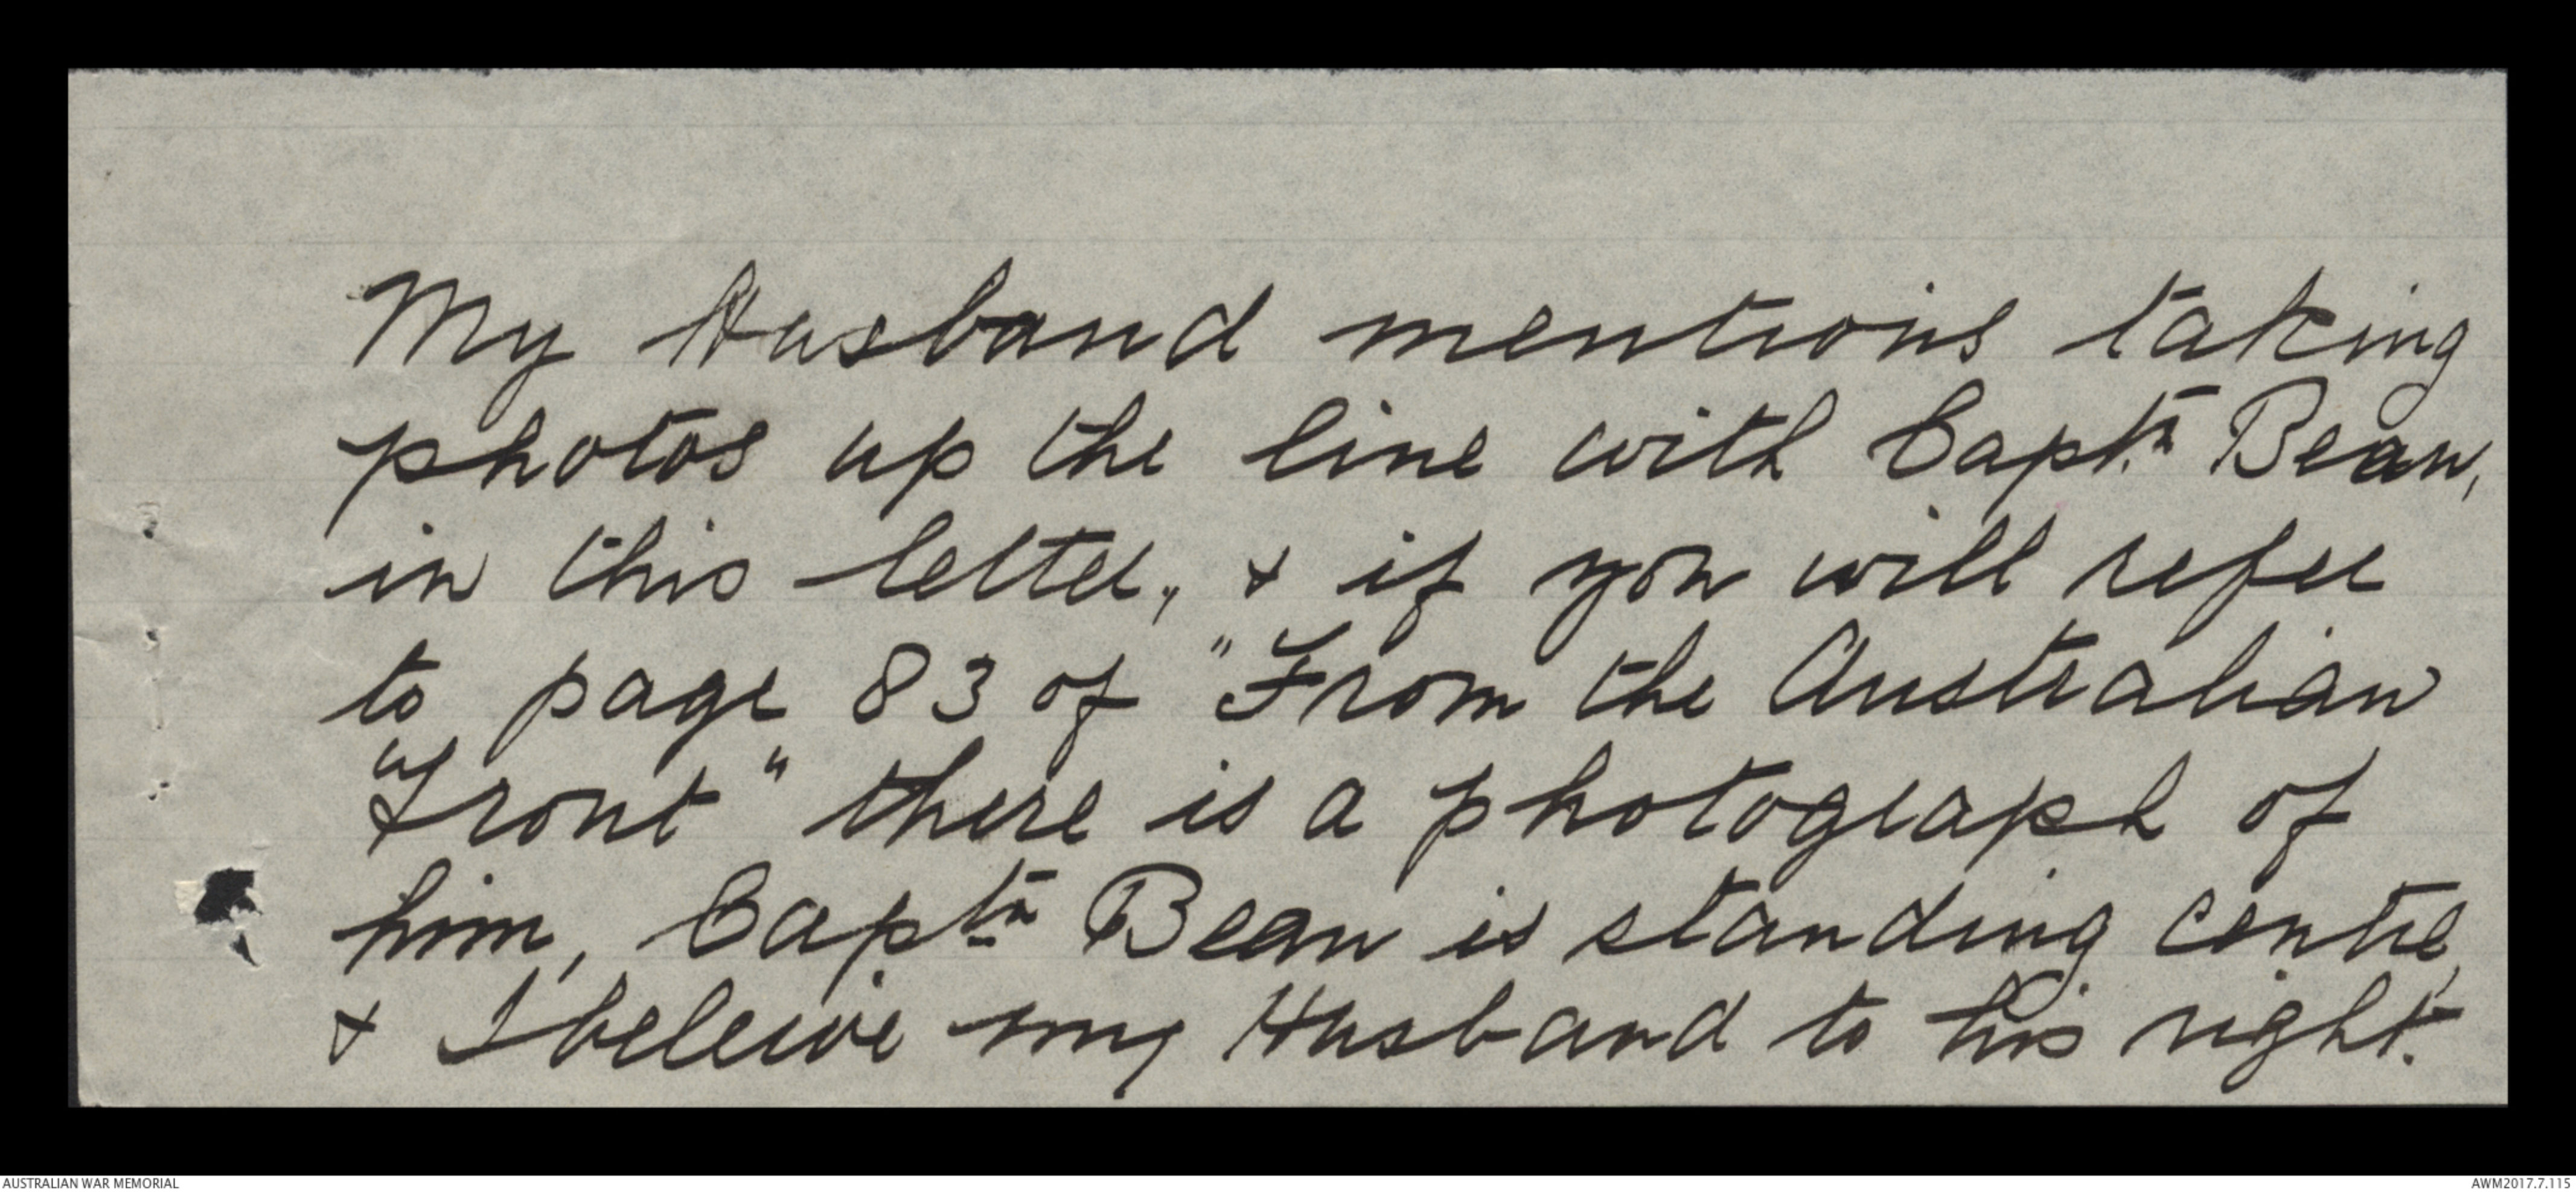 My Husband mentions taking
photos up the line with Captn Bean,
in this letter, & if you will refer
to page 83 of "From the Australian
"Front" there is a photograph of
him, Captn Bean is standing centre,
& I beleive my Husband to his right.
AUSTRALIAN WAR MEMORIAL
AWM2017.7.115